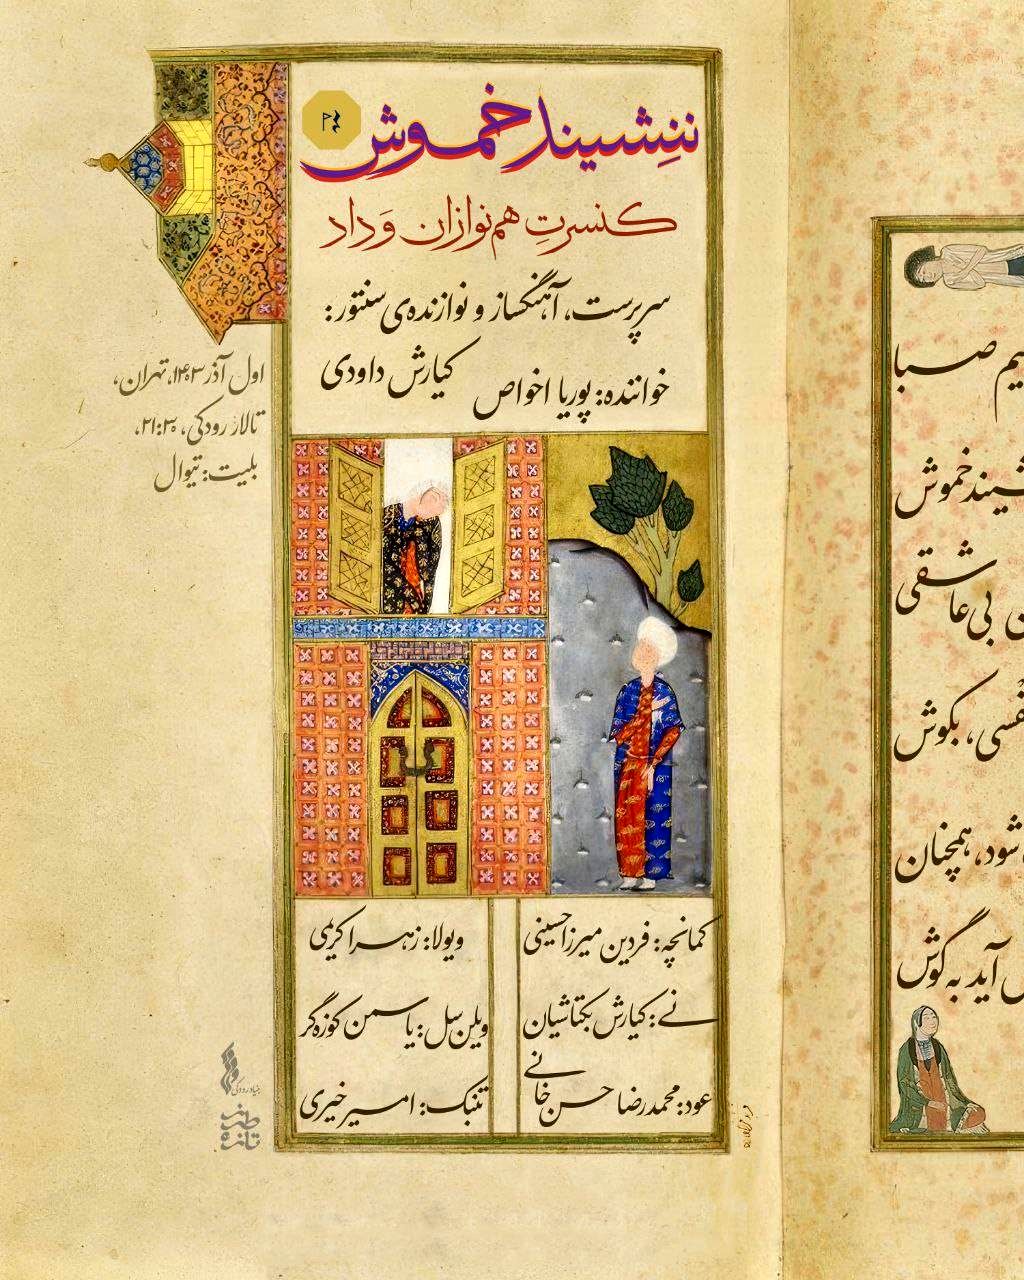 ننِشیند خموش
کنسرتِ هم‌نوازان وَداد
سرپرست، آهنگساز و نوازنده‌ی سنتور:
کیارش داودی
خواننده: پوریا اخواص
اول آذر ۱۴۰۳، تهران،
تالار رودکی، ۲۱:۳۰،
بلیت: تیوال
کمانچه: فردین میرزاحسینی
ویولا: زهرا کریمی
نے: کیارش بکتاشیان
ویلن‌سل: یاسمن کوزه‌گر
عود: محمدرضا حسن‌خانے
تنبک: امیر خیری
بنیاد رودکی
طرز
تازه
صبا
خموش
بی‌عاشقی
بکوش
شود، همچنان
آید به گوش